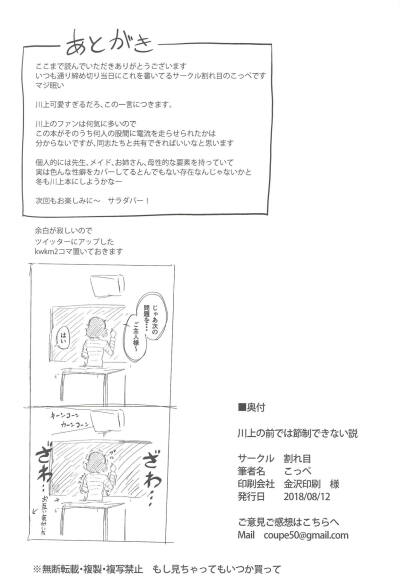 あとがき
ここまで読んでいただきありがとうございます
いつも通り締め切り当日にこれを書いてるサークル割れ目のこっぺです
マジ眠い
川上可愛すぎるだろ、この一言につきます。
川上のファンは何気に多いので
この本がそのうち何人の股間に電流を走らせられたかは
分からないですが、同志たちと共有できればいいなと思います
個人的には先生、メイド、お姉さん、母性的な要素を持っていて
実は色んな性癖をカバーしてるとんでもない存在なんじゃないかと
冬も川上本にしようかなー
次回もお楽しみに〜　サラダバー！
余白が寂しいので
ツイッターにアップした
kwkm2コマ置いておきます
じゃあ次の
問題を…
ご主人様〜
はい
キーンコーン
カーンコーン
ざわ…
ざわ…
■奥付
川上の前では節制できない説
サークル　割れ目
筆者名　こっぺ
印刷会社　金沢印刷　様
発行日　2018/08/12
ご意見ご感想はこちらへ
Mail　coupe50@gmail.com
※無断転載・複製・複写禁止　もし見ちゃってもいつか買って